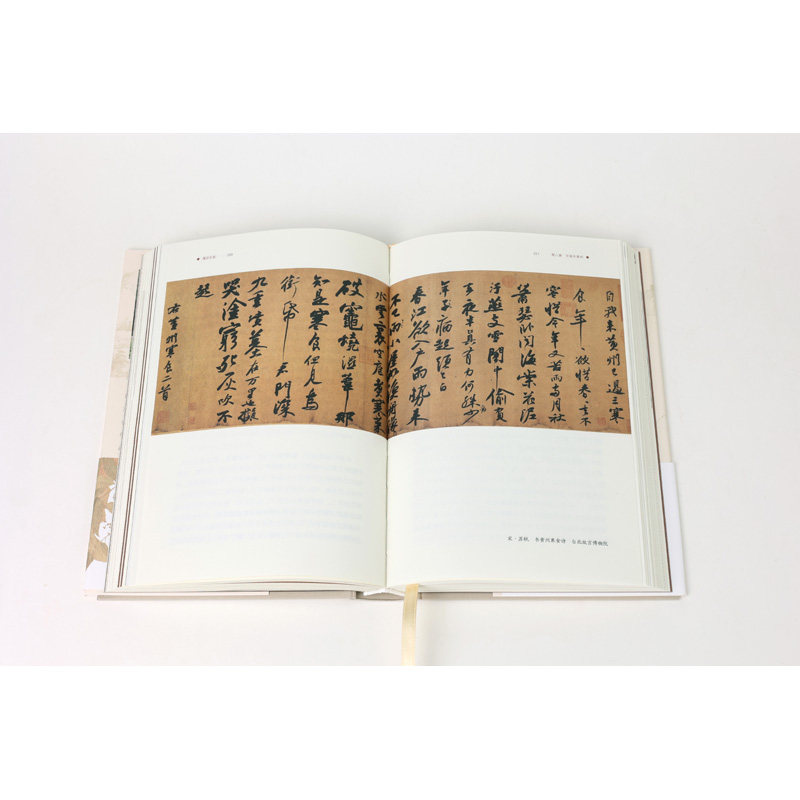 自我来黄州已過三寒
食年〻欲惜春〻不
容惜今年又苦雨兩月秋
蕭瑟卧聞海棠花泥
汙燕支雪闇中偷負
去夜半真有力何殊少
年子病起頭已白
春江欲入户雨勢来
不已小屋如漁舟濛〻
水雲裏空庖煮寒菜
破竈燒濕葦那
知是寒食但見烏
銜帋君門深
九重墳墓在万里也擬
哭塗窮死灰吹不
起
右黄州寒食二首
宋·苏轼 书黄州寒食诗 台北故宫博物院